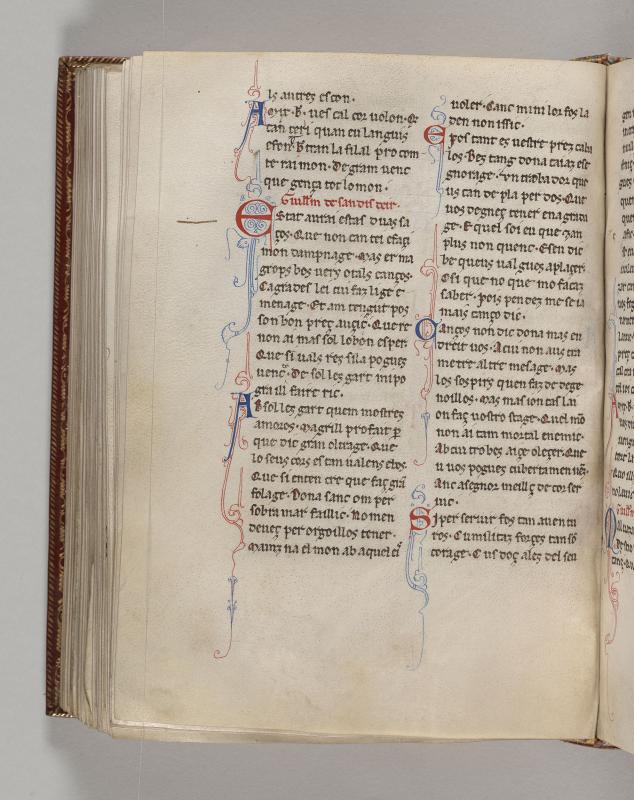 ls autres escon.
Aqir. b. ues cal cor uolon. Or
tan ten quan eu languis
efon. b tran la filal pro com
te rai mon. De gram uenc
que gença tot lo mon.
Guillm de san dis deir.
Estat aurai estas duas sa
ços. Que non can tei e faiç
mon dampnage. Mas er ma
grops bos uers otals canços.
Cagrades lei cui faz lige e
menage. Et am tengut pos
son bon preç auçic. Quere
non ai mas sol lo bon esper
Que si uals res sil a pogues
uenc. De sol les gart mi po
gra ill faire ric.
Ab sol les gart quem mostres
amoros. Magrill pro fait p
que dic gran oltrage. Que
lo seus cors es tan ualens e bos.
Que si enten cre que faç grā
folage. Dona sanc om per
sobra mar faillic. No men
deueç per orgoillos tener.
Mainz na el mon ab aquel ei
uoler. Canc mi ni lor fos la
den non iffic.
Epos tant es uestre prez caba
los. Bes tang dona caiaz ese
gnorage. Un trobador que
us can de pla per dos. Que
uos degnes tener enagrau
ge. E quel soi eu que ian
plus non quenc. E sen dic
be queus ual gues aplazer
O si que no que mo facaz
saber. pois pen dez me se ia
mais canço dic.
Canços non dic dona mas en
dreit uos. A cui non aus tra
metre altre mesage. Mas
los sospirs quen faz de dege
noillos. Mas mas ion cas lai
on faz uostro stage. Quel mō
non ai tam mortal enemic.
Ab cui trobes aiçe oleger. Que
u uos pogues cubertamen uer.
Anc a segnor meill ç de cor ser
uic.
Si per seruir fos tan auen tu
ros. C umilitaz forçes tan sō
corage. C us doç alez del seu